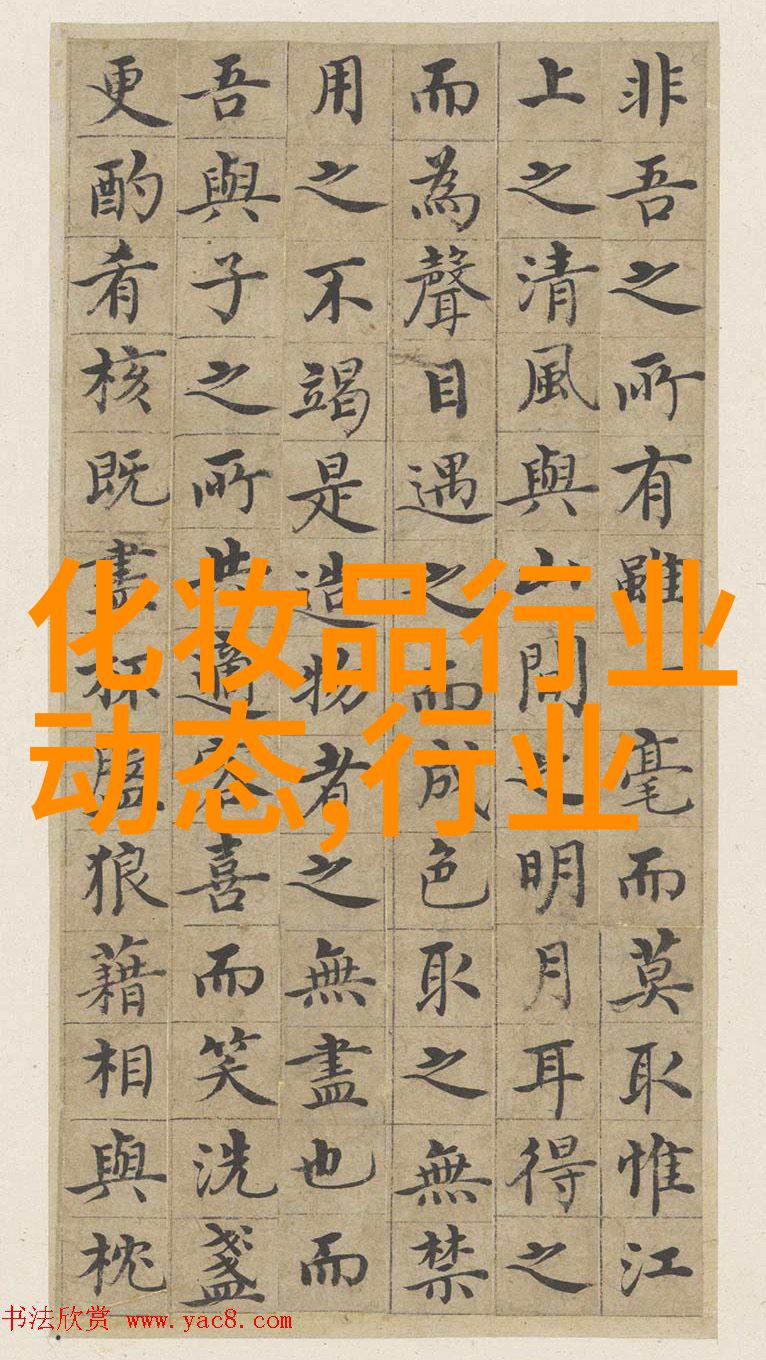 非吾之所有雖毫而莫取惟江
上之清風與山間之明月耳得之
而為聲目遇之而成色取之無禁
用之不竭是造物者之無盡也而
吾與子之所共適客喜而笑洗盞
更酌肴核既盡杯盤狼藉相與枕
化妆品行业
动态,行业
书法欣赏 www.yac8.com